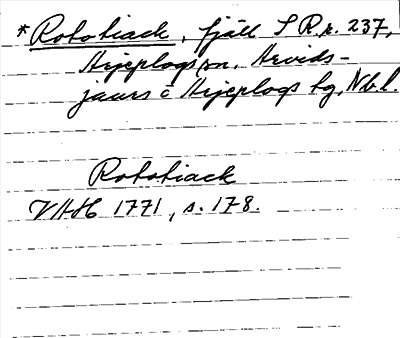 *Rototiack, fjäll S R.r. 237,
Arjeplogs sn, Arvids-
jaurs o Arjeplogs tg, Nbl.
Rototiack
VHAH 1771, s. 178.